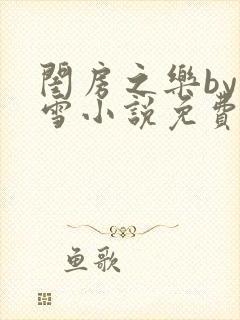 閨房之樂by
雪小說免費
鱼歌